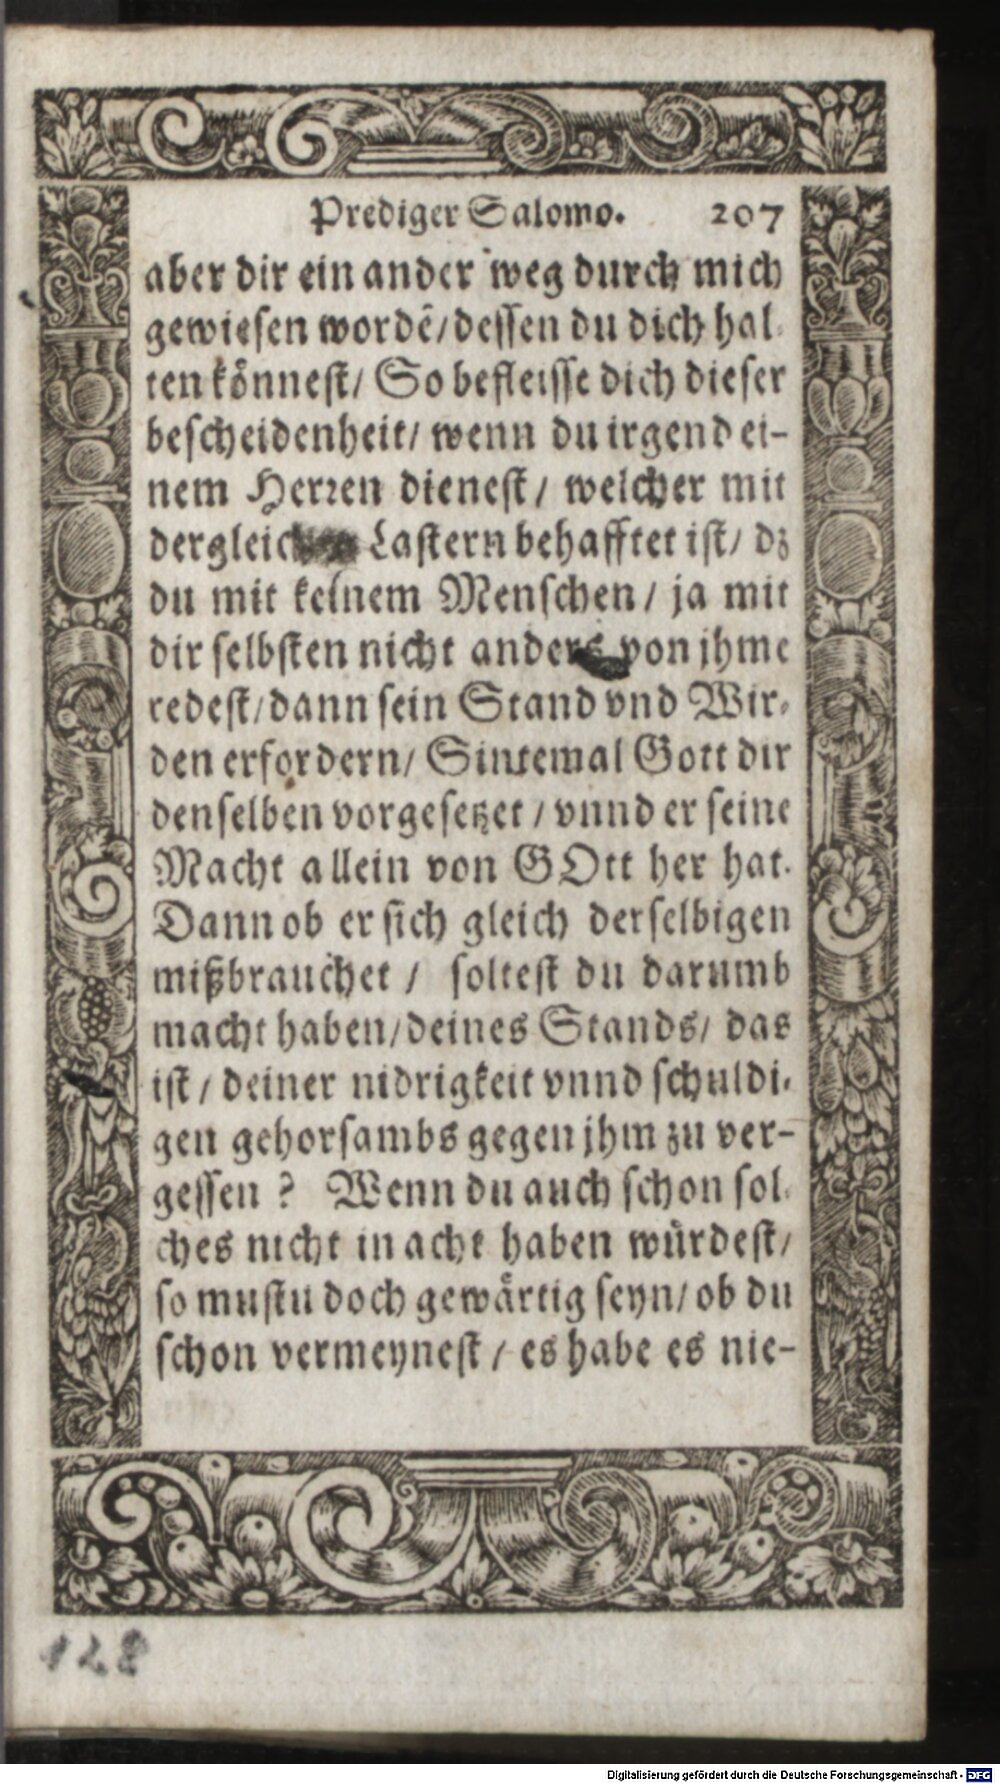 Prediger Salomo. 207
aber dir ein ander weg durch mich
gewiesen wordẽ/dessen du dich hal-
ten koͤnnest/ So befleisse dich dieser
bescheidenheit/ wenn du irgend ei-
nem Herren dienest/ welcher mit
Lastern behafftet ist/ dz
du mit keinem Menschen/ ja mit
dir selbsten nicht anders von jhme
redest/dann sein Stand vnd Wir-
den erfordern/ Sintemal Gott dir
denselben vorgesetzet/ vnnd er seine
Macht allein von GOtt her hat.
Dann ob er sich gleich derselbigen
mißbrauchet/ soltest du darumb
macht haben/deines Stands/ das
ist/ deiner nidrigkeit vnnd schuldi-
gen gehorsambs gegen jhm zu ver-
gessen? Wenn du auch schon sol-
ches nicht in acht haben wuͤrdest/
so mustu doch gewaͤrtig seyn/ob du
schon vermeynest/ es habe es nie-
128
Digitalisierung gefördert durch die Deutsche Forschungsgemeinschaft - DFG